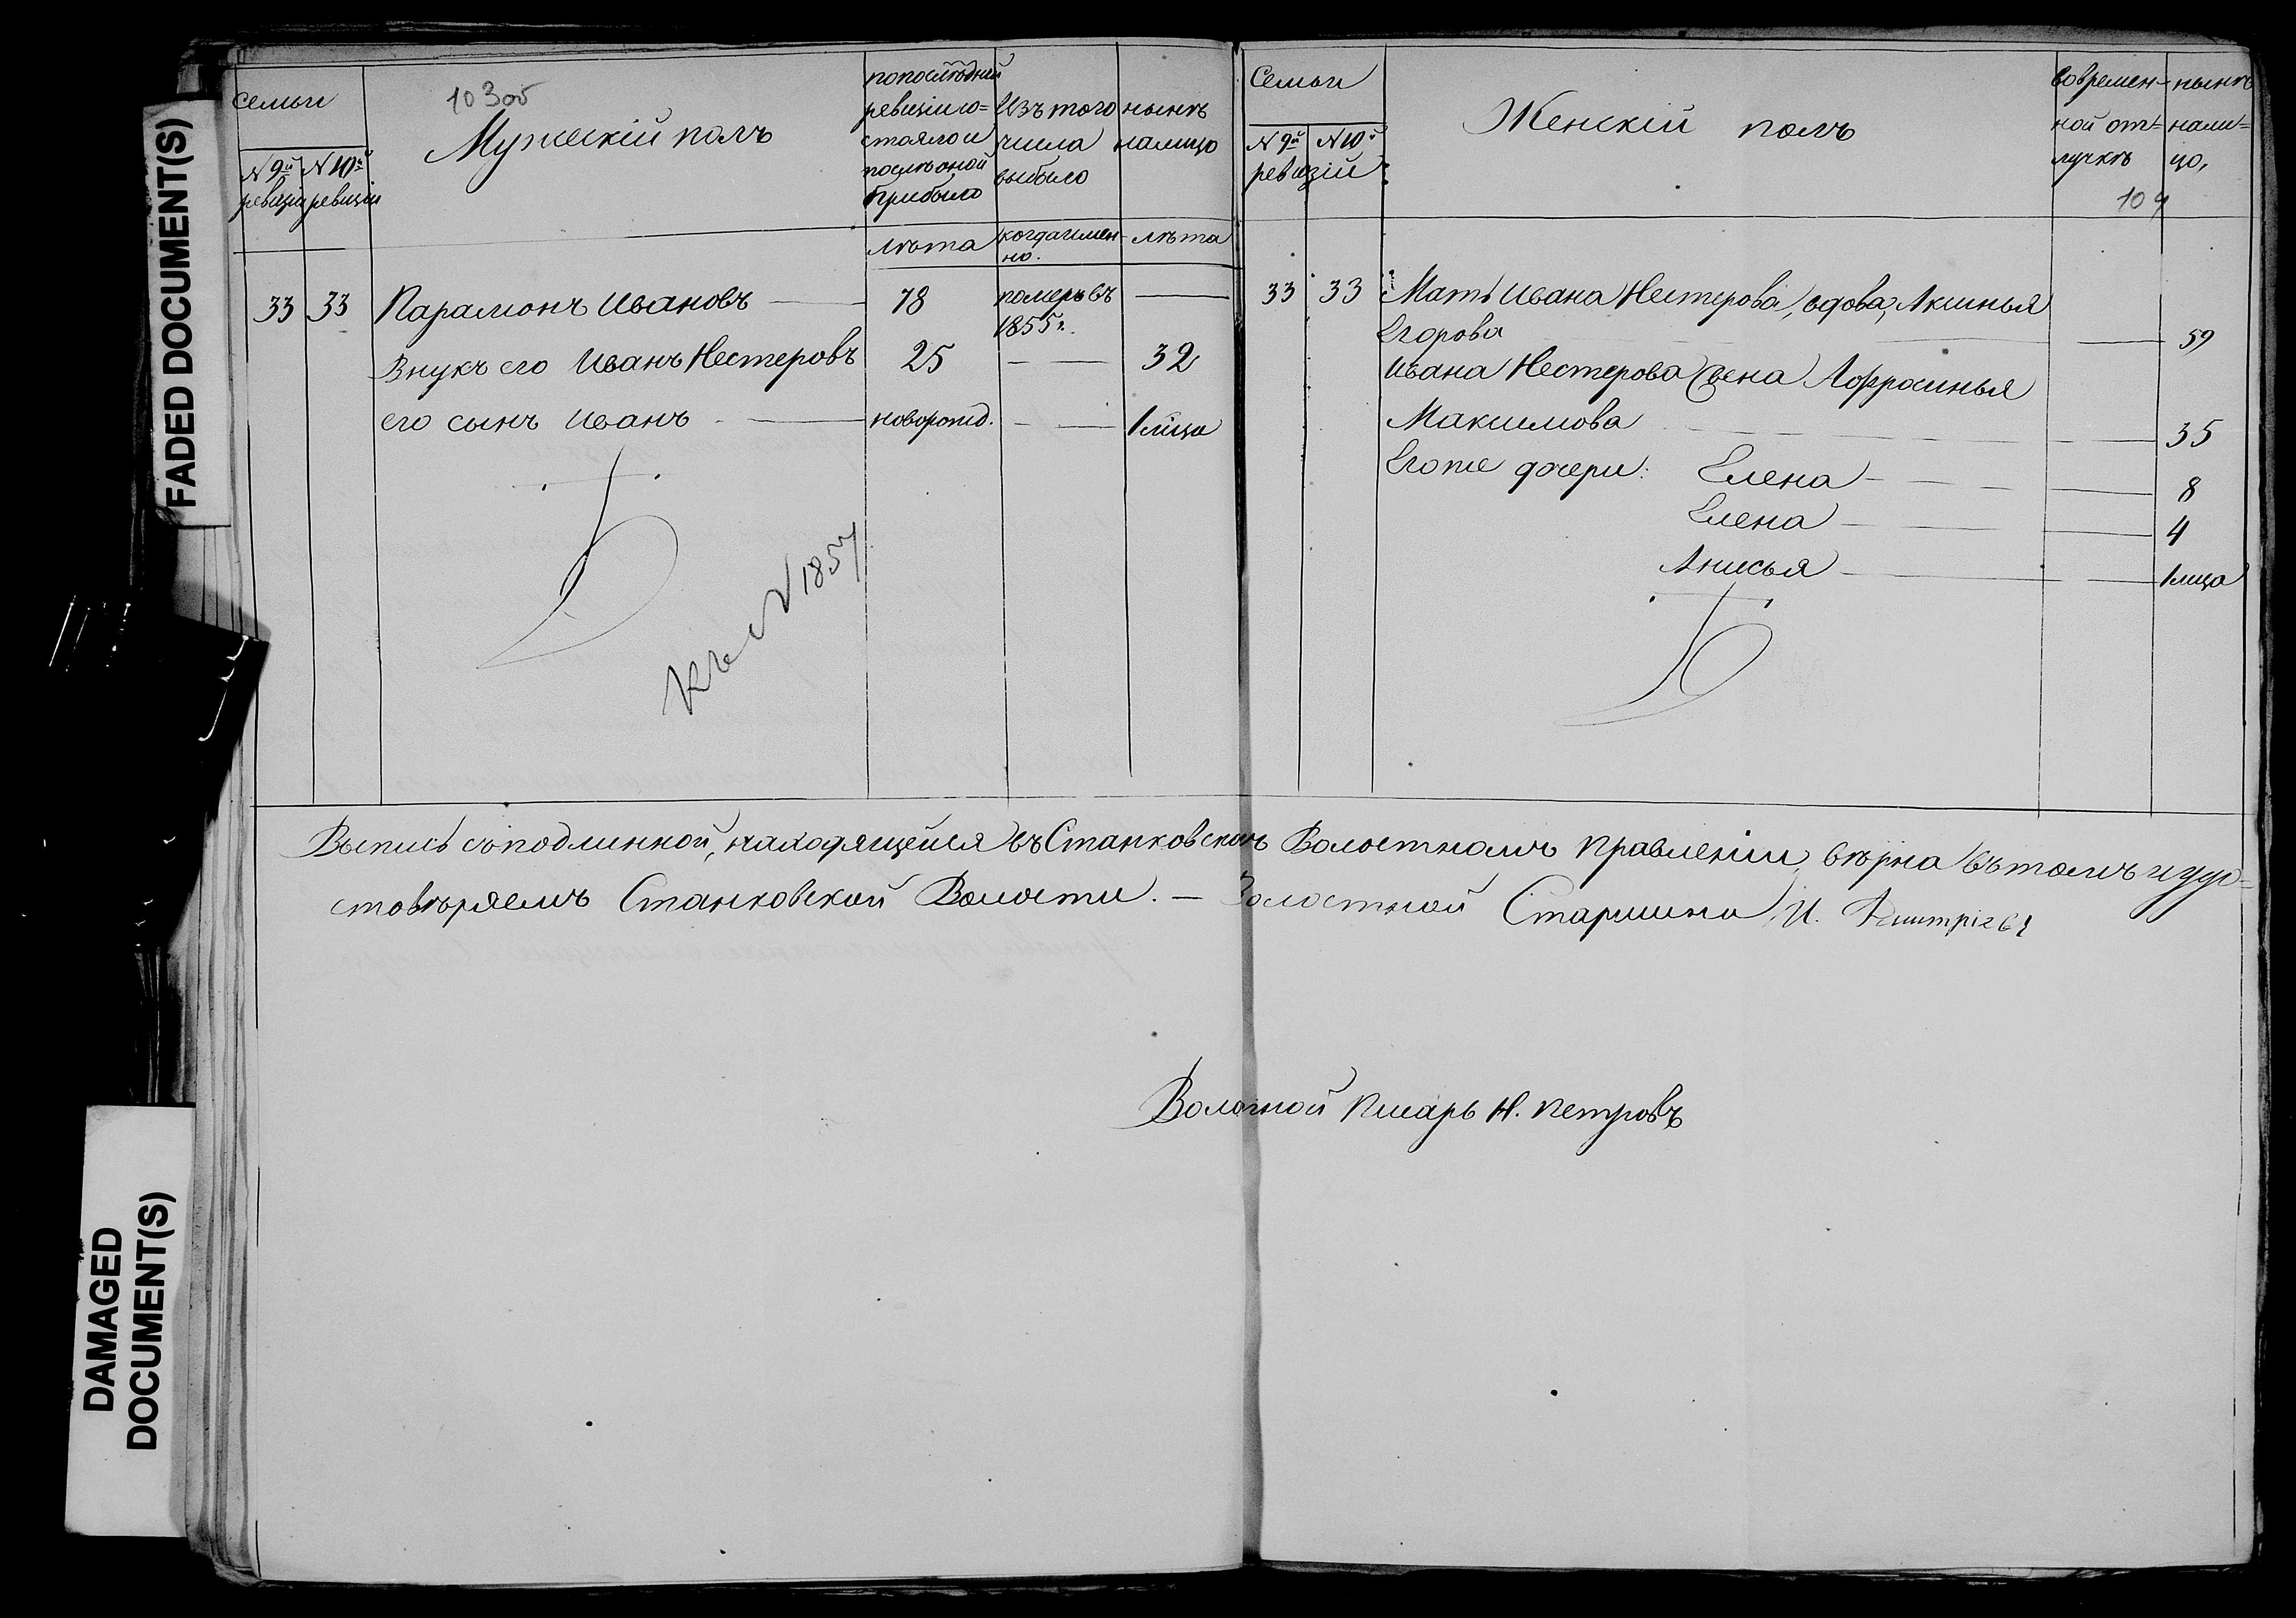 FADED DOCUMENT(S)
DAMAGED DOCUMENT(S)
Семьи
№ 9й ревизіи
№ 10й ревизіи
103об
Мужескій полъ
по послѣдней
ревизіи со=
стояло и
послѣ оной
прибыло
Изъ того
числа
выбыло
нынѣ
налицо
лѣта
когда имен-
но.
лѣта
33 33 Парамонъ Ивановъ 78 померъ въ
1855 г.
Внукъ его Иванъ Нестеровъ 25 32
его сынъ Иванъ новорожд. 1 лица
1857
Семьи
№ 9й № 10й
ревизій
Женскій полъ
во времен-
ной от=
лучкѣ
нынѣ
нали=
цо,
104
33 33 Мать Ивана Нестерова, вдова, Аксинья
Егорова 59
Ивана Нестерова жена Аффросинья
Максимова 35
Егоже дочери: Елена 8
Елена 4
Анисья 1 лица
Выпись съ подлинной, находящейся въ Станковскомъ Волостномъ Правленіи, вѣрна въ томъ и удо=
стовѣряемъ Станковской Волости. — Волостной Старшина И. Дмитріевъ
Волосной Писарь Н. Петровъ